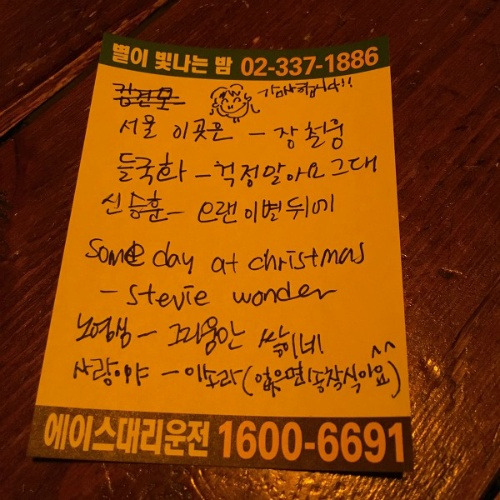 별이 빛나는 밤 02-337-1886
감사합니다!!
서울 이곳은 - 장철웅
들국화 - 걱정말아요 그대
신승훈 - 오랜 이별뒤에
Someday at christmas
- stevie wonder
노영심 - 그리움만 쌓이네
사랑이야 -
에이스대리운전 1600-6691